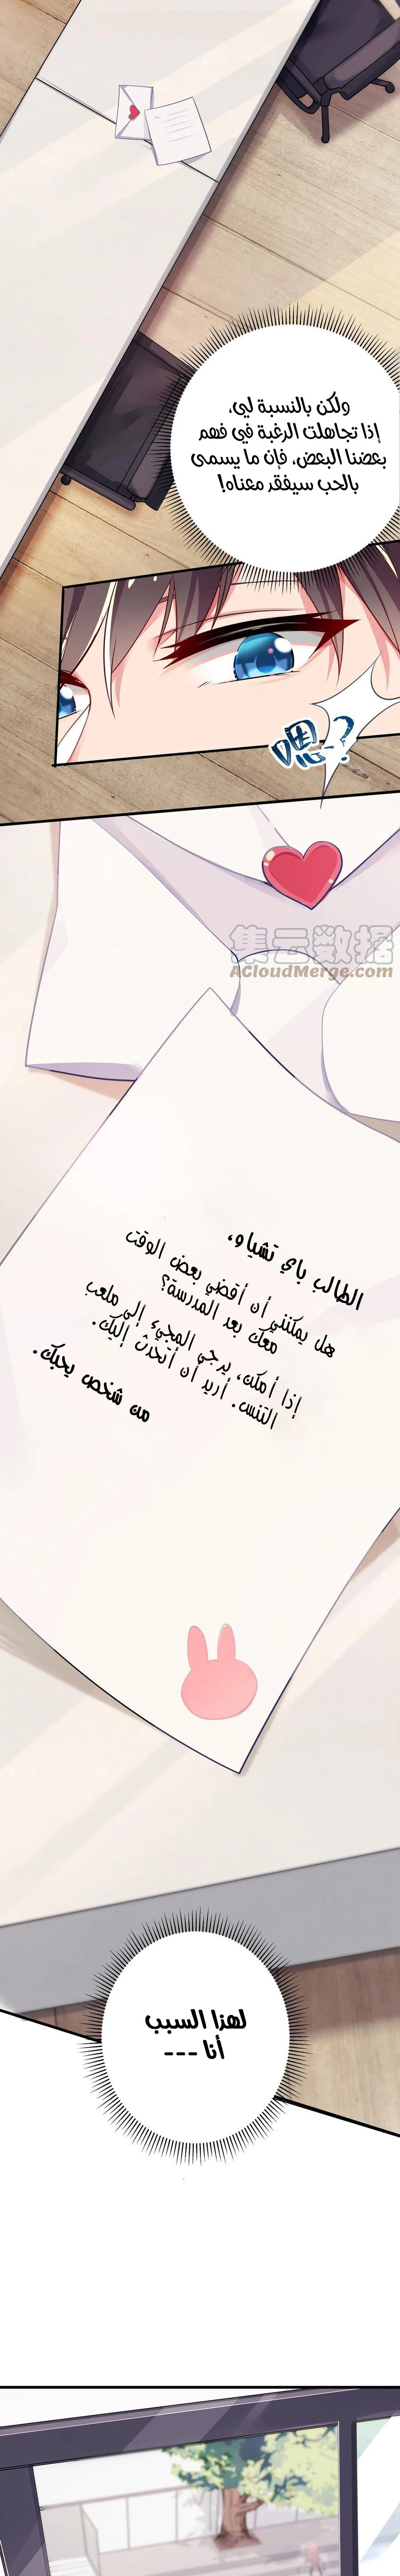 ولكن بالنسبة لي،
إذا تجاهلت الرغبة في فهم
بعضنا البعض، فإن ما يسمى
بالحب سيفقد معناه!
嗯?
集云数据
ACloudMerge.com
الطالب باي تشياو،
هل يمكنني أن أقضي بعض الوقت
معك بعد المدرسة؟
إذا أمكن، يرجي المجيء إلى ملعب
التنس. أريد أن أتحدث إليك.
من شخص يحبك.
لهذا السبب
أنا ---